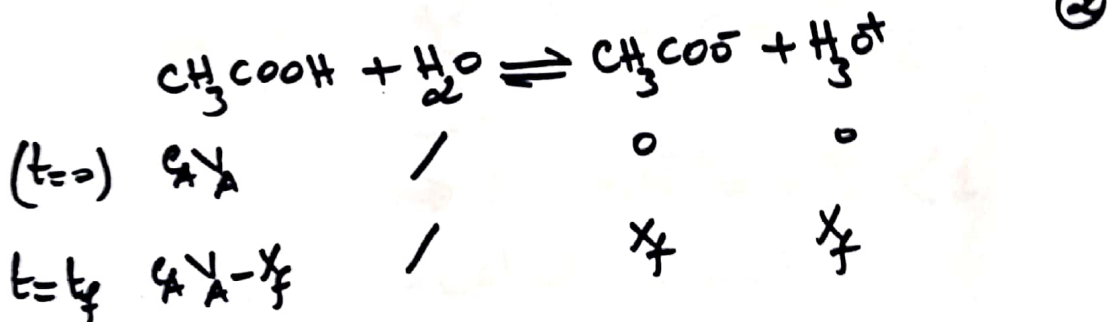 ②
CH₃COOH + H₂O ⇌ CH₃COO⁻ + H₃O⁺
(t=0) C_A V_A / 0 0
t=t_f C_A V_A - X_f / X_f X_f